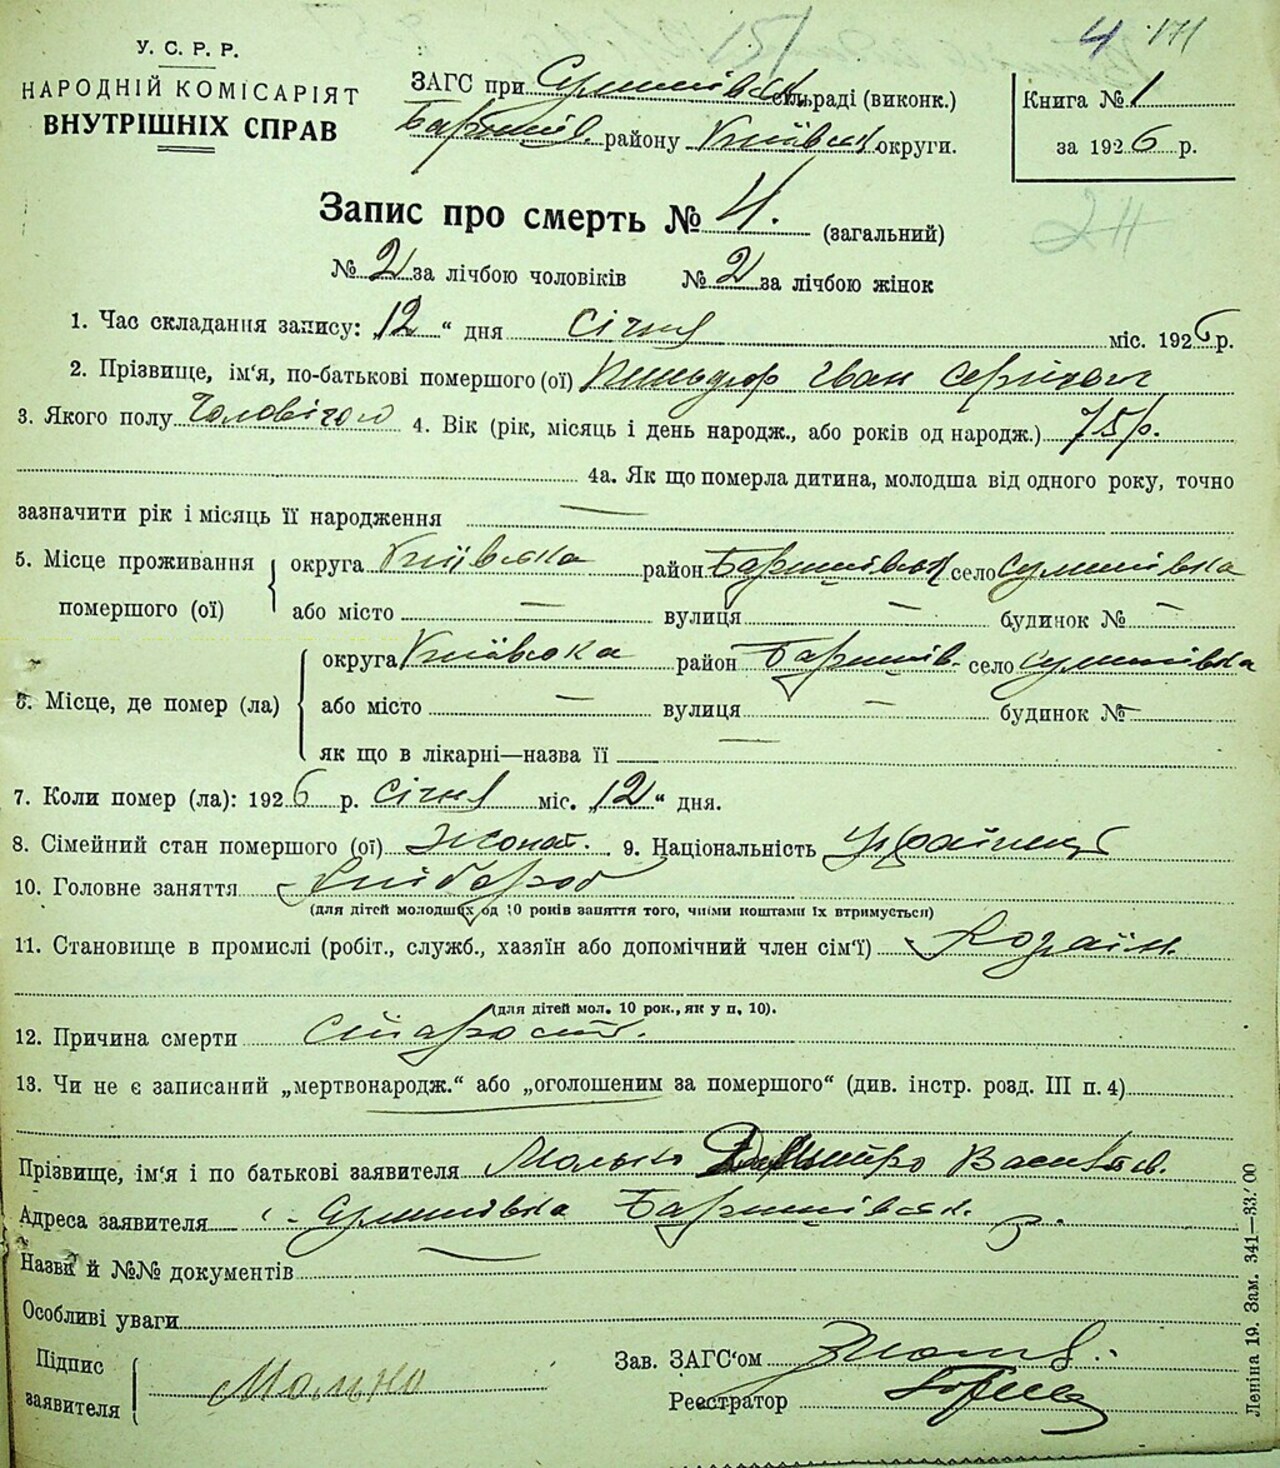 4
У. С. Р. Р.
НАРОДНІЙ КОМІСАРІЯТ
ВНУТРІШНІХ СПРАВ
ЗАГС при сільраді (виконк.)
району Київськ округи.
Книга № 1
за 1926 р.
Запис про смерть № 4. (загальний)
№ 2 за лічбою чоловіків № 2 за лічбою жінок
1. Час складання запису: „12“ дня січня міс. 1926 р.
2. Прізвище, ім‘я, по-батькові помершого (ої) Іван
3. Якого полу Чоловічого 4. Вік (рік, місяць і день народж., або років од народж.) 75 р.
4а. Як що померла дитина, молодша від одного року, точно
зазначити рік і місяць її народження —
5. Місце проживання помершого (ої) округа Київська район Баришівськ село Сулимівка
або місто — вулиця — будинок № —
6. Місце, де помер (ла) округа Київська район Баришів. село Сулимівка
або місто — вулиця — будинок № —
як що в лікарні—назва її —
7. Коли помер (ла): 1926 р. січня міс. „12“ дня.
8. Сімейний стан помершого (ої) Жонат. 9. Національність Українець
10. Головне заняття Хлібороб
(для дітей молодших од 10 років заняття того, чиїми коштами їх втримується)
11. Становище в промислі (робіт., служб., хазяїн або допомічний член сім‘ї) Хозяїн.
(для дітей мол. 10 рок., як у п. 10).
12. Причина смерти Старост.
13. Чи не є записаний „мертвонародж.“ або „оголошеним за помершого“ (див. інстр. розд. III п. 4)
Прізвище, ім‘я і по батькові заявителя Малько Дмитро Васильов.
Адреса заявителя Сулимівка Баришівськ. р.
Назви й №№ документів —
Особливі уваги
Підпис заявителя Малько
Зав. ЗАГС‘ом
Реєстратор
Леніна 19. Зам. 341—33.